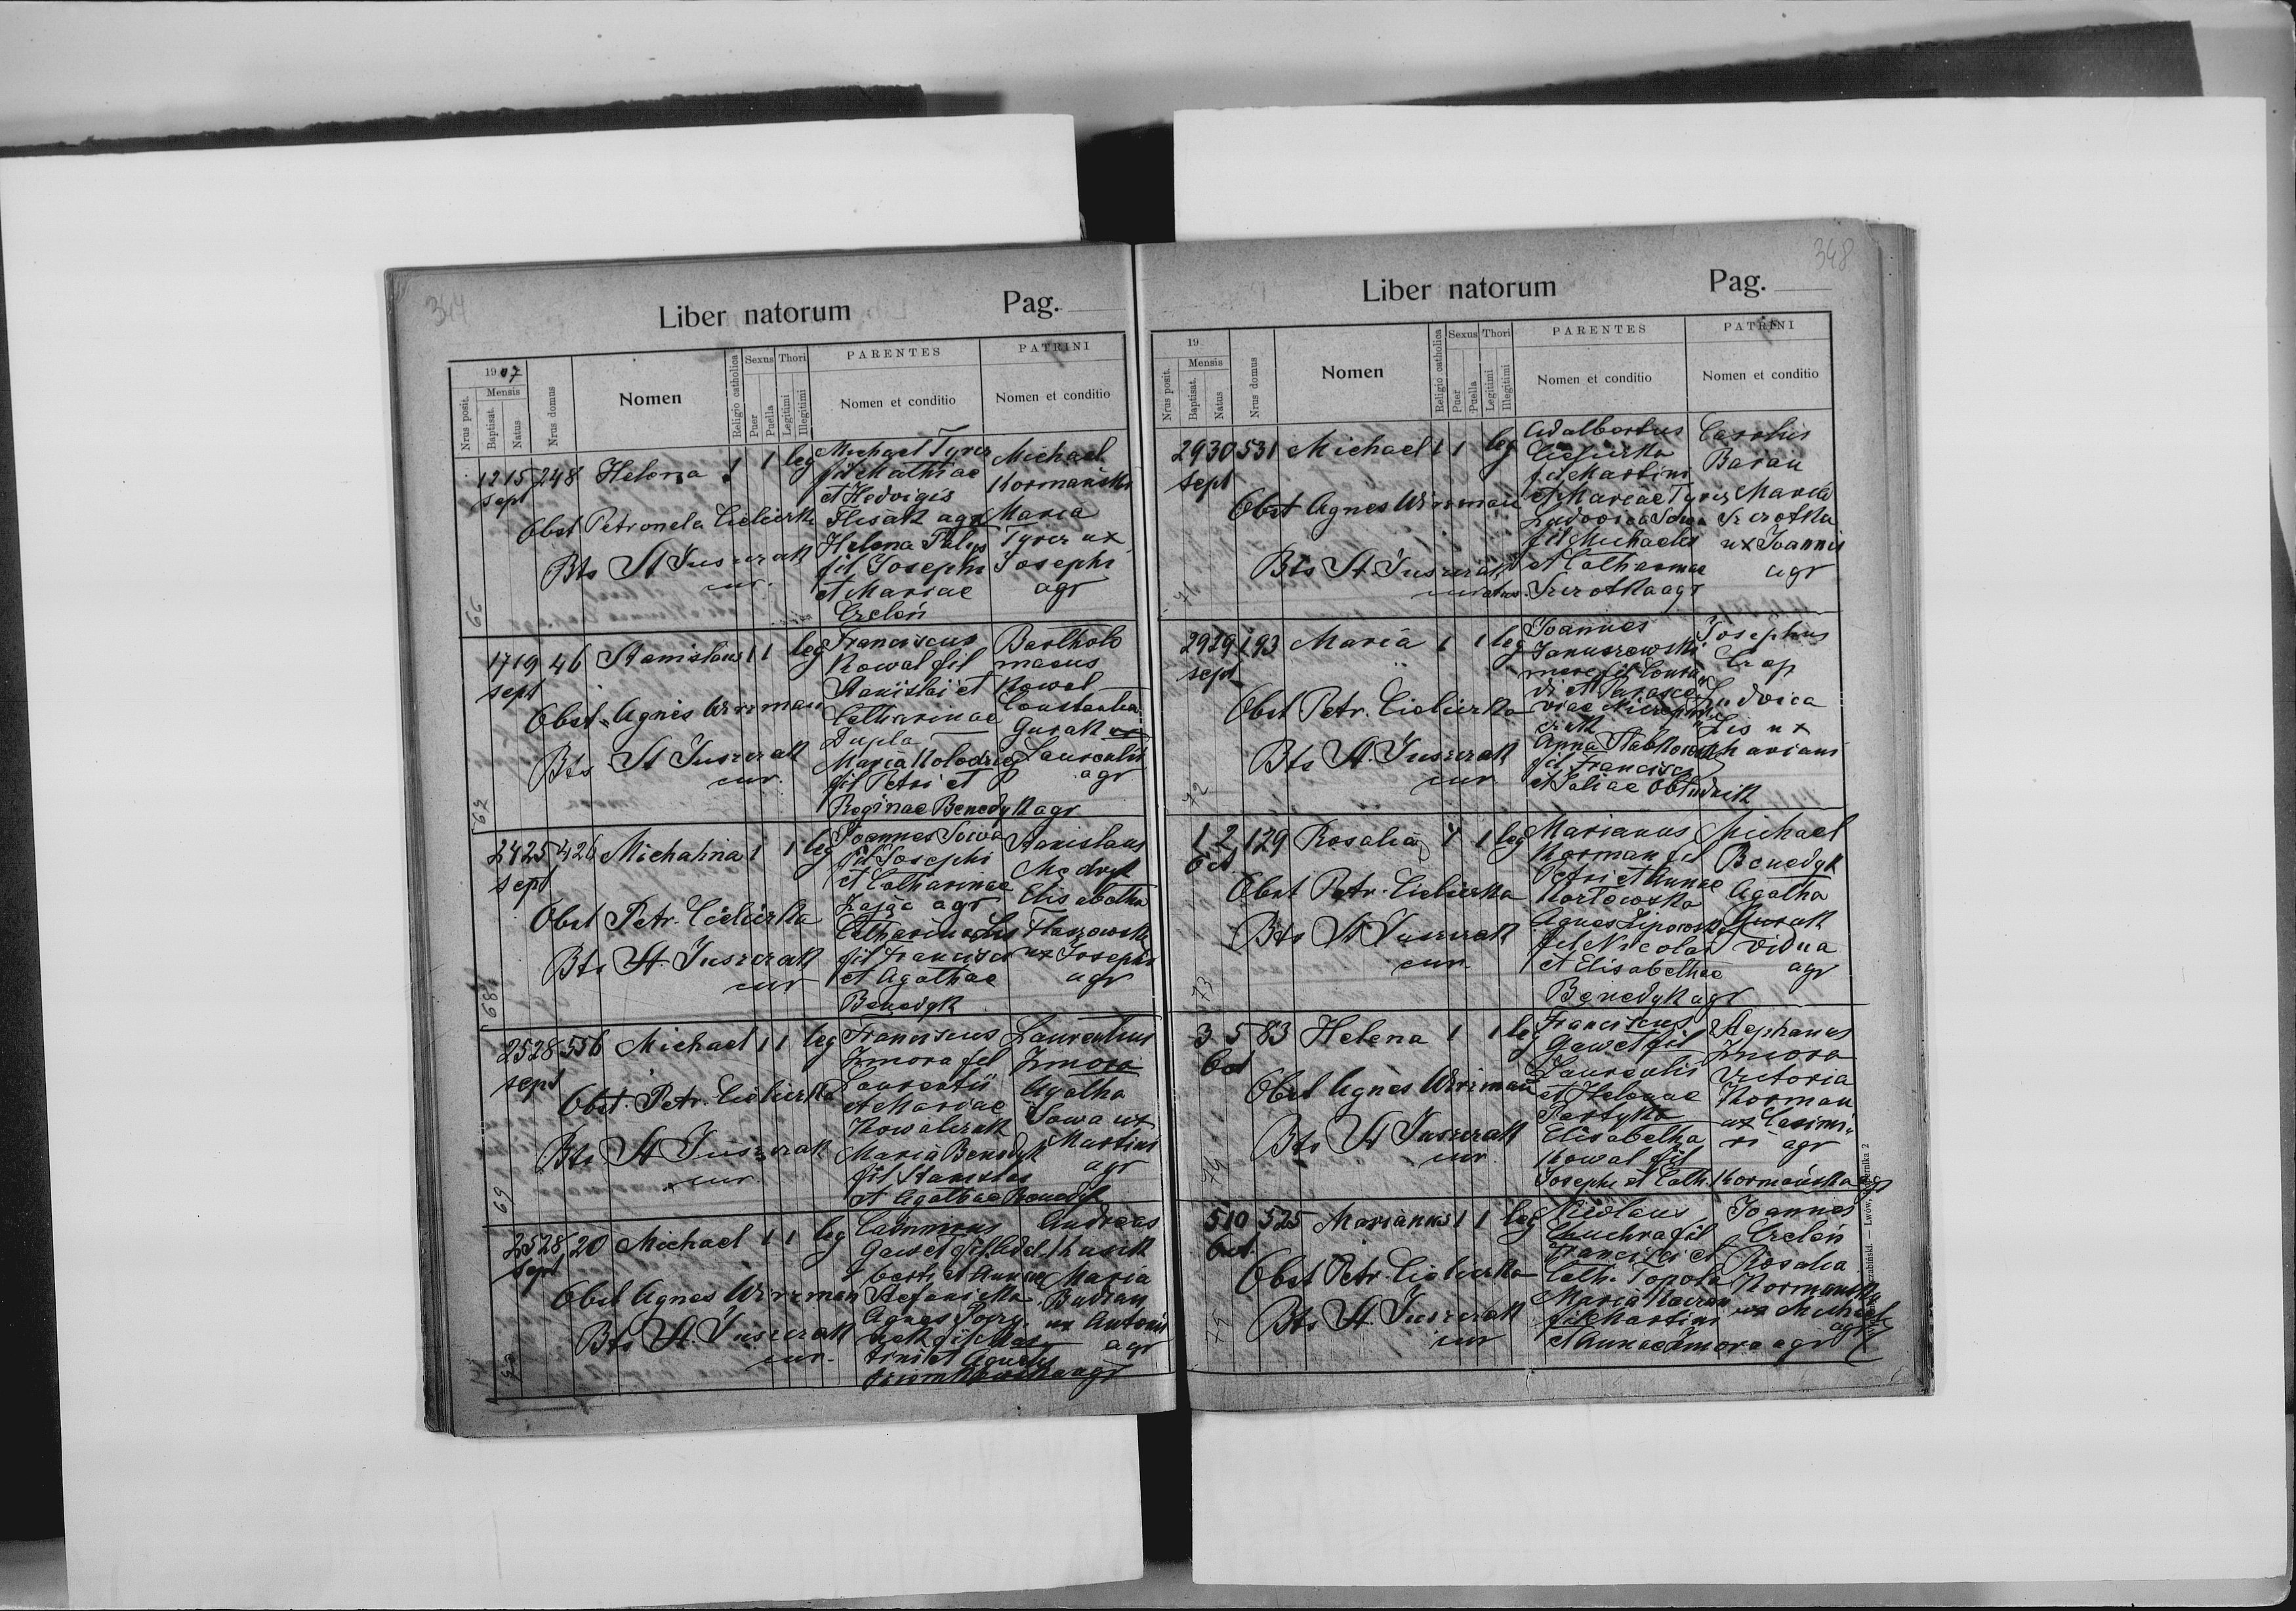 344
Liber natorum Pag.
1907
Nrus posit.
Mensis
Baptisat.
Natus
Nrus domus
Nomen
Religio catholica
Sexus
Puer
Puella
Thori
Legitimi
Illegitimi
PARENTES
Nomen et conditio
PATRINI
Nomen et conditio
66
12 15 248 Helena 1 1 leg
sept
Obst Petronela Cielierka
Bts St Juszczak
cur.
Michael Tyrcz
fil Mathiae
et Hedvigis
Flisak agr
Helena
fil Josephi
et Mariae
Czeloń
Michael
Kormański
Maria
Tyrcz ux
Josephi
agr
67
17 19 46 Stanislaus 1 1 leg
sept
Obst. Agnes Wizman
Bts St Juszczak
cur.
Franciscus
Kowal fil
Stanislai et
Catharinae
Dupla
Maria Kolodziej
fil Petri et
Reginae Benedyk agr
Bartholo
maeus
Kowal
Constantia
Gurak ux
Laurentii
agr
68
24 25 426 Michalina 1 1 leg
sept
Obst Petr. Cielierka
Bts St. Juszczak
cur
Joannes Sowa
fil Josephi
et Catharinae
Zając agr
Catharina Lis
fil Francisci
et Agathae
Benedyk
Stanislaus
Mędryk
Elisabetha
ux Josephi
agr
69
25 28 556 Michael 1 1 leg
sept
Obst. Petr. Cielierka
Bts St Juszczak
cur.
Franciscus
Zmora fil
Laurentii
et Mariae
Kowalczuk
Maria Benedyk
fil Stanislai
et Agathae Benedyk
Laurentius
Zmora
Agatha
Sowa ux
Martini
agr
70
25 28 20 Michael 1 1 leg
sept
Obst Agnes Wizman
Bts St. Juszczak
cur.
Casimirus
Gawet fil Adal
berti et Annae
Stefanicka
Agnes
fil Mar
tini et Agnetis
agr
Andreas
Husik
Maria
Budzan
ux Antonii
agr
348
Liber natorum Pag.
19
Nrus posit.
Mensis
Baptisat.
Natus
Nrus domus
Nomen
Religio catholica
Sexus
Puer
Puella
Thori
Legitimi
Illegitimi
PARENTES
Nomen et conditio
PATRINI
Nomen et conditio
71
29 30 531 Michael 1 1 leg
sept
Obst Agnes Wizman
Bts St. Juszczak
Adalbertus
Cielierka
fil Martini
et Mariae Tyrcz
Ludovica Sowa
fil Michaelis
et Catharinae
Szerotka agr
Carolus
Baran
Maria
Szerotka
ux Joannis
agr
72
29 29 193 Maria 1 1 leg
sept
Obst Petr. Cielierka
Bts St. Juszczak
cur
Joannes
Januszewski
Anna
fil Francisci
et Juliae
Josephus
Czop
Ludvica
Lis ux
Mariani
73
1 2 129 Rosalia 1 1 leg
Oct.
Obst Petr. Cielierka
Bts St Juszczak
cur
Marianus
Korman fil
Petri et Annae
Agnes Lipowska
fil Nicolai
et Elisabethae
Benedyk agr
Michael
Benedyk
Agatha
Gurak
vidua
agr
74
3 5 83 Helena 1 1 leg
Oct
Obst Agnes Wizman
Bts St Juszczak
cur
Franciscus
Gawet fil
Laurentii
et Helenae
Partyka
Elisabetha
Kowal fil
Josephi et Cath. Kormańska agr
Stephanus
Zmora
Victoria
Korman
ux Casimi
ri agr
75
5 10 525 Marianus 1 1 leg
Oct.
Obst Petr. Cielierka
Bts St Juszczak
cur
Nicolaus
Chuchra fil
Francisci et
Cath. Topola
Maria
fil Martini
et Annae Zmora agr
Joannes
Czeloń
Rosalia
Kormańska
ux Michaelis
agr